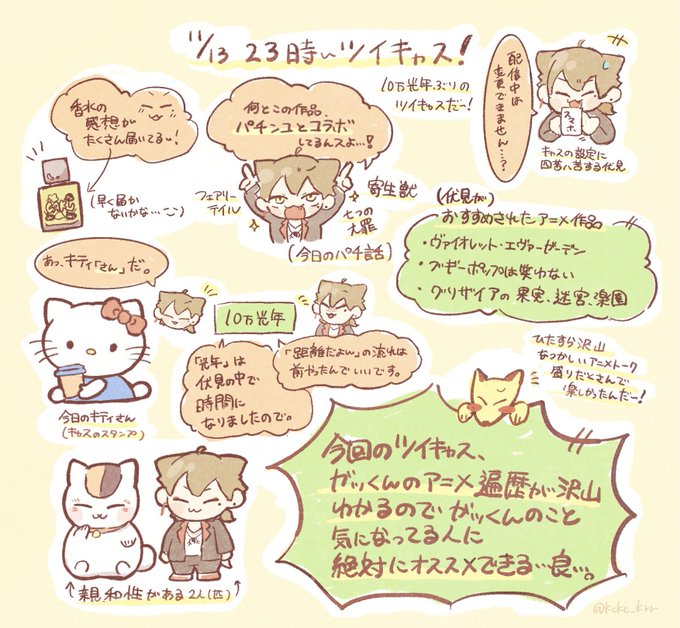 11/13 23時〜ツイキャス!
10万光年ぶりの
ツイキャスだー!
配信中は
変更できません…?
スマホ
キャスの設定に
四苦八苦する伏見
香水の
感想が
たくさん届いてるぅ!
(早く届か
ないかな…
何とこの作品、
パチンコとコラボ
してるんスよ…!
フェアリー
テイル
寄生獣
七つの
大罪
(今日のパチ話)
(伏見が)
おすすめされたアニメ作品
・ヴァイオレット・エヴァーガーデン
・ブギーポップは笑わない
・グリザイアの果実、迷宮、楽園
あっ、キティ「さん」だ。
今日のキティさん
(キャスのスタンプ)
10万光年
「光年」は
伏見の中で
時間に
なりましたので。
「距離だよぉ」の流れは
前やったんでいいです。
ひたすら沢山
なつかしいアニメトーク
盛りだくさんで
楽しかったんだー!
今回のツイキャス、
ガッくんのアニメ遍歴が沢山
わかるのでガッくんのこと
気になってる人に
絶対にオススメできる…良い…。
↑親和性がある2人(匹)↑
@kcko_krr